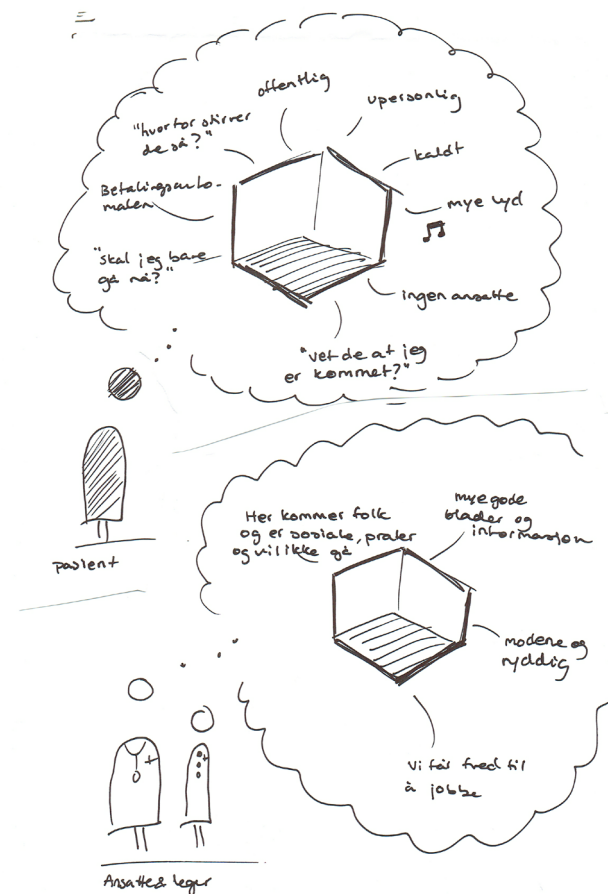 offentlig
upersonlig
"hvorfor stirrer
de så?"
kaldt
Betalingsauto-
maten
mye lyd
"skal jeg bare
gå nå?"
ingen ansatte
"vet de at jeg
er kommet?"
pasient
Her kommer folk
og er sosiale, prater
og vil ikke gå
mye gode
blader og
informasjon
moderne og
ryddig
Vi får fred til
å jobbe
Ansatte & leger